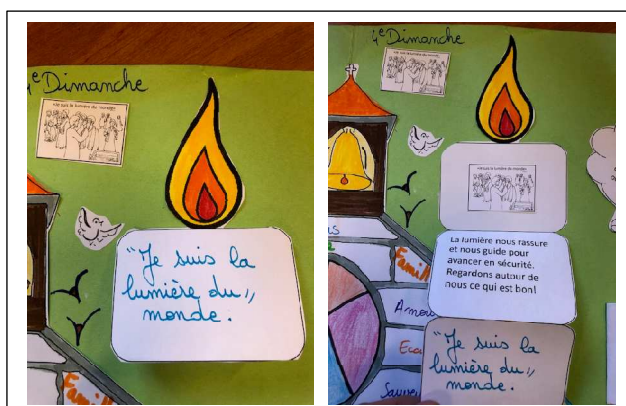 4e Dimanche
«Je suis la lumière du monde»
"Je suis la
lumière du"
monde.
Famill
4e Dimanche
«Je suis la lumière du monde»
«Je suis la lumière du monde»
La lumière nous rassure
et nous guide pour
avancer en sécurité.
Regardons autour de
nous ce qui est bon!
Famill
Amou
Eco
"Je suis la
lumière du"
monde.